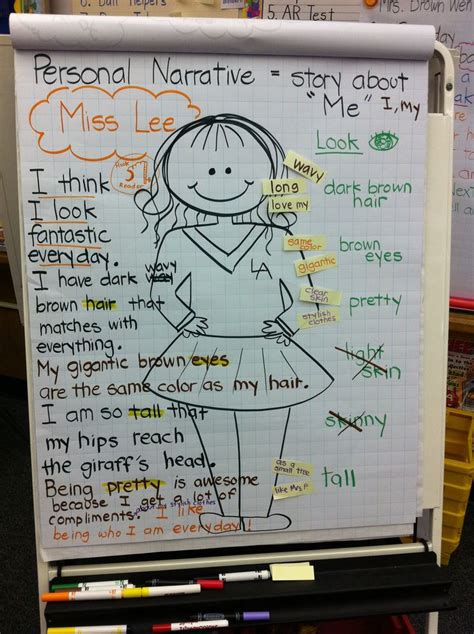 5. AR Test
Mrs. Brown Wen
Personal Narrative = story about
"Me" I, my
Miss Lee
Look
Hook
Reader
I think
I look
fantastic
everyday.
I have dark wavy
brown hair that
matches with
everything.
My gigantic brown eyes
are the same color as my hair.
I am so tall that
my hips reach
the giraff's head.
Being pretty is awesome
because I get a lot of
compliments. I like
being who I am everyday!
LA
wavy
long
love my
dark brown
hair
same
color
gigantic
brown
eyes
clear
skin
stylish
clothes
pretty
light
skin
skinny
as a
small tree
like Mrs. P
tall